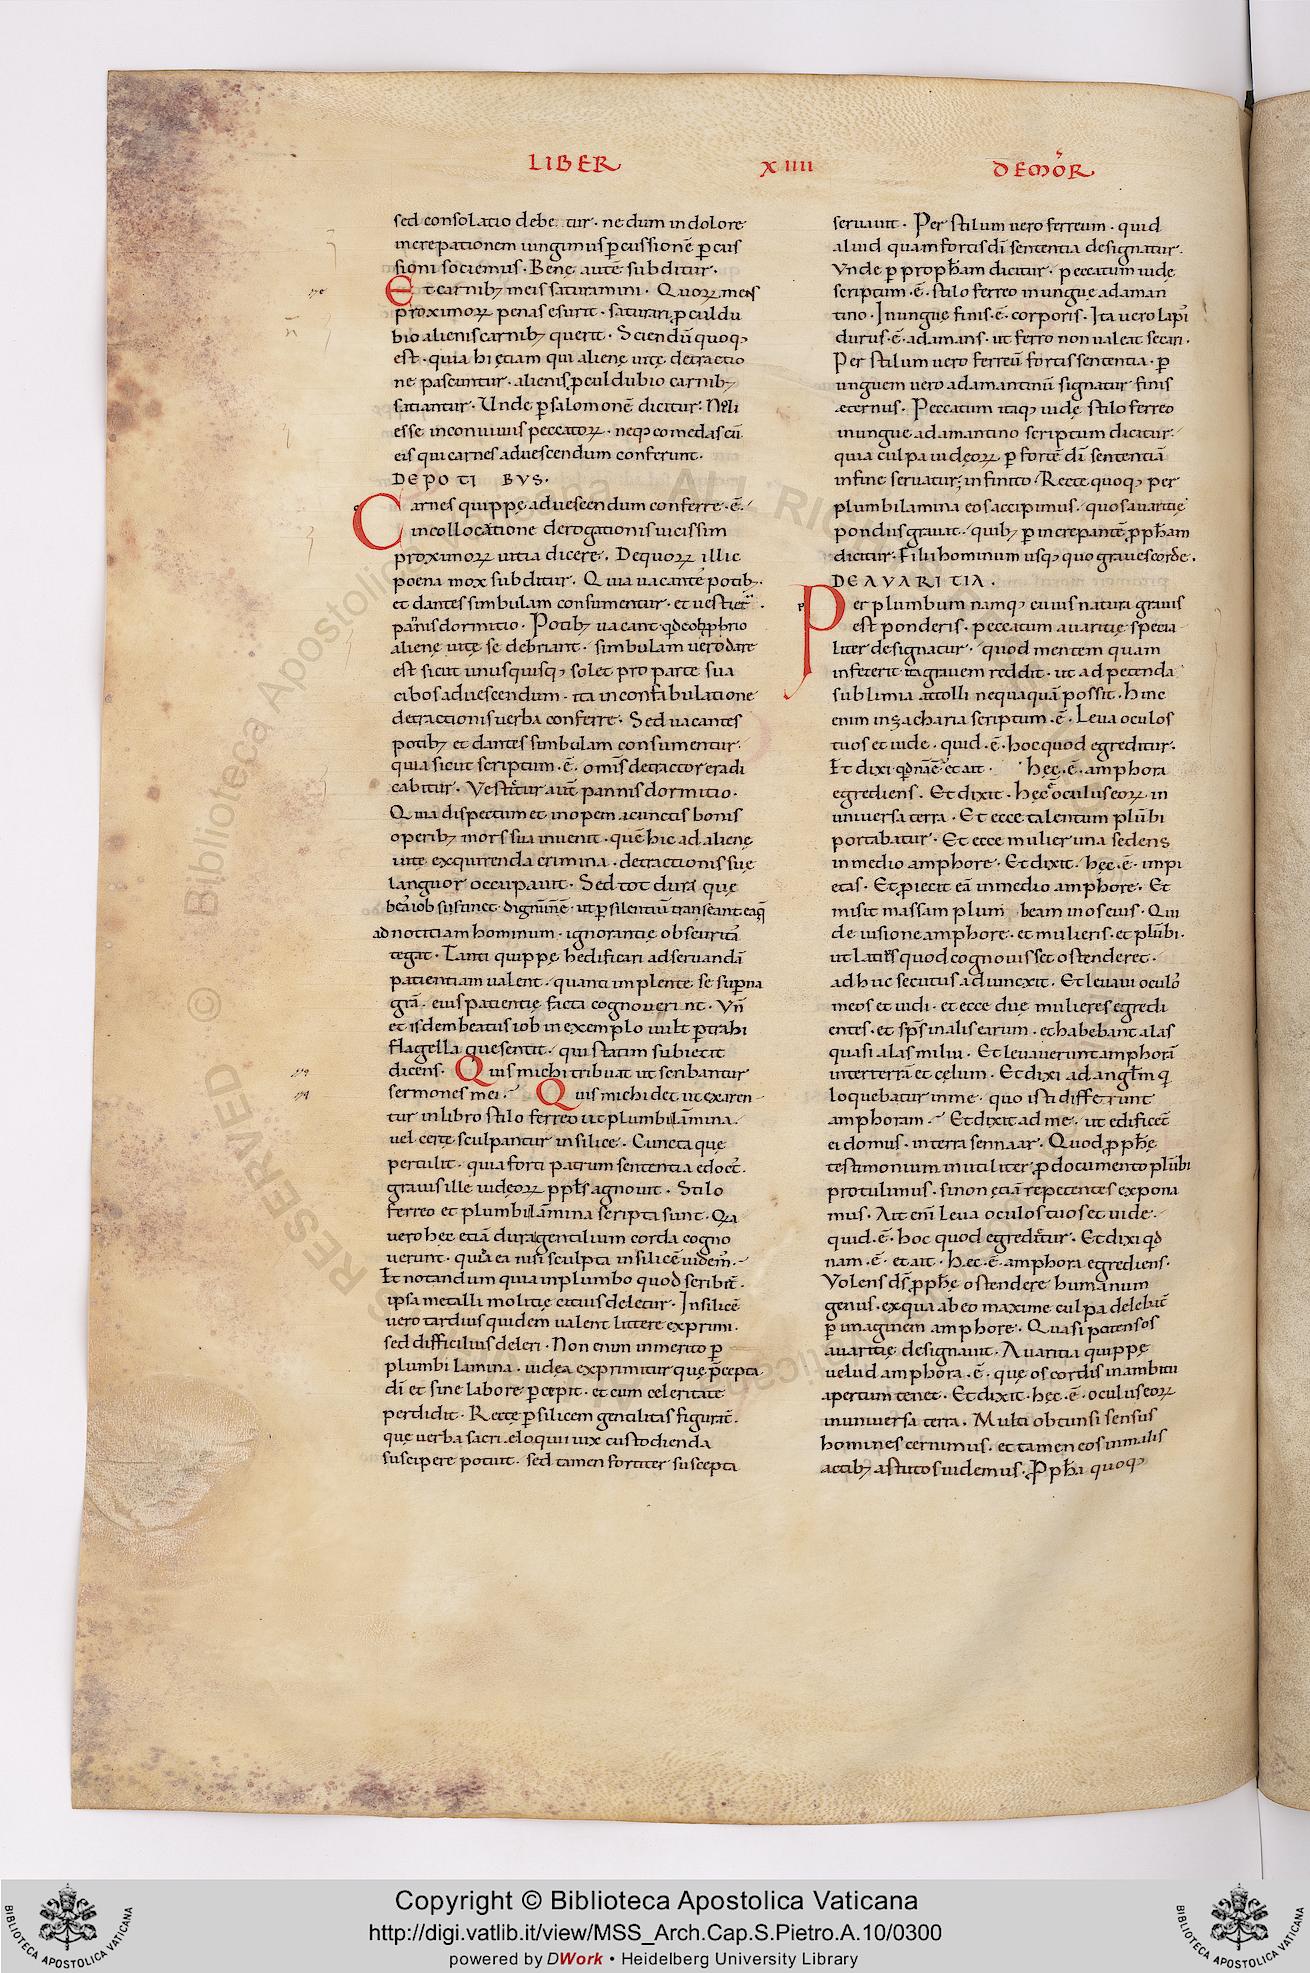 LIBER XIIII DE MOR̄
sed consolatio debe tur · ne dum in dolore
increpationem iungimus p̱cussionē p̱cus
sioni sociemus · Benę autē subditur ·
Et carnibꝫ meis saturamini · Quoꝝ mens
proximoꝝ penas esurit · saturari p̱culdu
bio alienis carnibꝫ querit · Sciendū quoqꝫ
est · quia hi ętiam qui alienę uitę detractio
ne pascuntur · alienis p̱culdubio carnibꝫ
satiantur · Unde p̱ salomonē dicitur: Noli
esse in conuiuiis peccatoꝝ · neqꝫ comedas cū
eis qui carnes ad uescendum conferunt ·
DE POTI BVS ·
Carnes quippe ad uescendum conferre · ē ·
in collocatione derogationis uicissim
proximoꝝ uitia dicere · De quoꝝ illic
poena mox subditur · Quia uacante potibꝫ ·
et dantes simbulam consumentur · et uestiet̄ ·
pannis dormitio · Potibꝫ uacant qd̄ eoꝝ p̱brio
alienę uitę se debriant · simbulam uero dare
est sicut unusquisqꝫ solet pro parte sua
cibos ad uescendum · ita in confabulatione
detractionis uerba conferre · Sed uacantes
potibꝫ et dantes simbulam consumentur ·
quia sicut scriptum · ē · omīs detractor eradi
cabitur · Vestitur aut̄ pannis dormitio ·
Quia dispectum et inopem a cunctis bonis
operibꝫ mors sua inuenit · quē hic ad alienę
uitę exquirenda crimina · detractionis suę
languor occupauit · Sed tot dura que
beat̄ iob sustinet · dignū n̄ ē · ut p̱ silentiū transeant · eaqꝫ
ad notitiam hominum · ignorantię obscuritā
tegat · Tanti quippe hedificari ad seruandā
patientiam ualent · quanti implente se sup̱na
grā · eius patientię facta cognouerint · Vn̄
et isdem beatus iob in exemplo uult p̱trahi
flagella que sentit · qui statim subiecit
dicens · Quis michi tribuat ut scribantur
sermones mei · Quis michi det ut exaren
tur in libro stilo ferreo ut plumbi lamina ·
uel certe sculpantur in silice · Cuncta que
pertulit · quia forti patrum sententia edoct̄ ·
grauis ille iudęoꝝ pp̄ls agnouit · Stilo
ferreo et plumbi lāmina scripta sunt · Qa
uero hec etiā dura gentilium corda cogno
uerunt · quid ea nisi sculpta in silicē uidem̄ ·
Et notandum quia in plumbo quod scribit̄ ·
ipsa metalli molitię citius deletur · In silicē
uero tardius quidem ualent littere exprimi ·
sed difficilius deleri · Non enim inmerito p̱
plumbi lamina · iudęa exprimitur que p̄cepta ·
dī et sine labore p̱cepit · et cum celeritate
perdidit · Rectę p̱ silicem gentilitas figurat̄ ·
quę uerba sacri eloquii uix custodienda
suscipere potuit · sed tamen fortiter suscepta
seruauit · Per stilum uero ferreum · quid
aliud quam fortis dī sententia designatur ·
Vnde p̱ proph̄am dicitur · peccatum iudę
scriptum · ē · stilo ferreo in ungue adaman
tino · In ungue finis · ē · corporis · Ita uero lapi
durus · ē · adamans · ut ferro non ualeat secari ·
Per stilum uero ferreū fortis sententia · p̱
unguem uero adamantinū signatur finis
æternus · Peccatum itaqꝫ iudę stilo ferreo
in ungue adamantino scriptum dicitur ·
quia culpa iudęoꝝ p̱ fortē dī sententiā
in fine seruatur infinito · Recte quoqꝫ per
plumbi lamina eos accipimus · quos auaritię
pondus grauat · quibꝫ p̱ increpantē p̱ph̄am
dicitur · Filii hominum usqꝫ quo graues corde ·
DE AVARITIA ·
Per plumbum namqꝫ cuius natura grauis
est ponderis · peccatum auaritię specia
liter designatur · quod mentem quam
infecerit ita grauem reddit · ut ad petenda
sublimia attolli nequaquā possit · Hinc
enim in zacharia scriptum · ē · Leua oculos
tuos et uide · quid · ē · hoc quod egreditur ·
Et dixi qd̄nā ē · et ait · hęc · ē · amphora
egrediens · Et dixit · hęc ē oculus eoꝝ in
uniuersa terra · Et ecce talentum plūbi
portabatur · Et ecce mulier una sedens
in medio amphore · Et dixit · hęc · ē · impi
etas · Et p̱iecit eā in medio amphore · Et
misit massam plum beam in os eius · Qui
de uisione amphore · et mulieris · et plūbi ·
ut latius quod cognouisset ostenderet ·
adhuc secutus adiuncxit · Et leuaui oculos
meos et uidi · et ecce duę mulieres egredi
entes · et sp̄s in alis earum · et habebant alas
quasi alas milui · Et leuauerunt amphorā
inter terrā et cęlum · Et dixi ad angl̄m q̇
loquebatur in me · quo isti differunt
amphoram · Et dixit ad me · ut edificet̄
ei domus · in terra sennaar · Quod p̱ph̄ę
testimonium inutiliter p̱ documento plūbi
protulimus · si non ętiā repetentes expona
mus · Ait enī Leua oculos tuos et uide ·
quid · ē · hoc quod egreditur · Et dixi qd̄
nam · ē · et ait · hec · ē · amphora egrediens ·
Volens ds̄ p̱ph̄ę ostendere humanum
genus · ex qua ab eo maxime culpa delebat̄
p̱ imaginem amphore · Quasi patens os
auaritię designauit · Auaritia quippę
uelud amphora · ē · quę os cordis in ambitu
apertum tenet · Et dixit · hęc · ē · oculus eoꝝ
in uniuersa terra · Multi obtunsi sensus
homines cernimus · et tamen eos in malis
actibꝫ astutos uidemus · P̱ph̄a quoqꝫ
Copyright © Biblioteca Apostolica Vaticana
http://digi.vatlib.it/view/MSS_Arch.Cap.S.Pietro.A.10/0300
powered by DWork • Heidelberg University Library
BIBLIOTECA APOSTOLICA VATICANA
BIBLIOTECA APOSTOLICA VATICANA